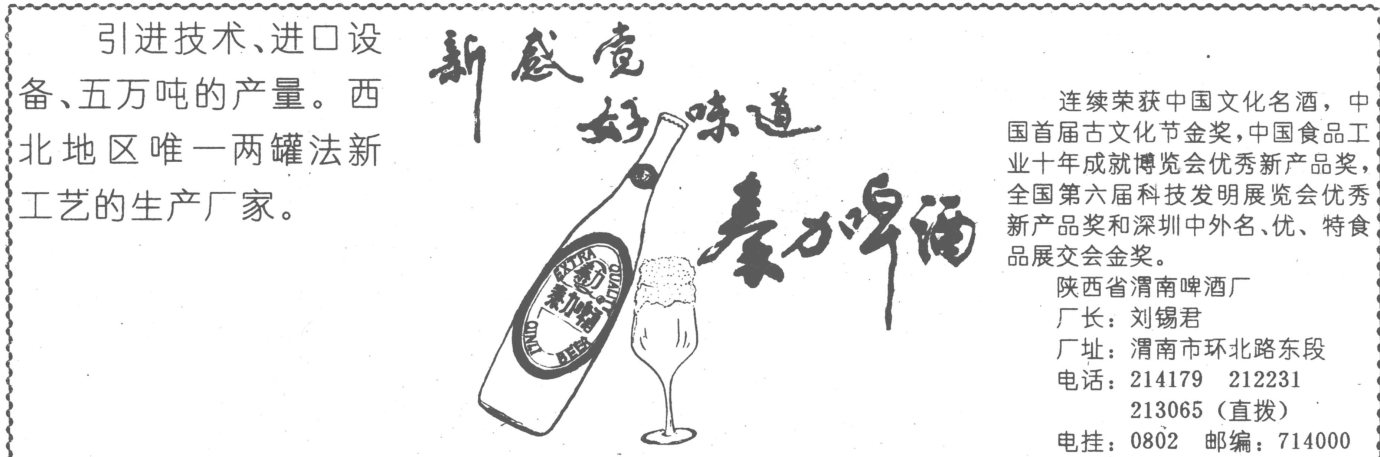 引进技术、进口设
备、五万吨的产量。西
北地区唯一两罐法新
工艺的生产厂家。
新感觉
好味道
秦力啤酒
EXTRA QUALI
秦力
秦力啤酒
BEER
连续荣获中国文化名酒，中
国首届古文化节金奖，中国食品工
业十年成就博览会优秀新产品奖，
全国第六届科技发明展览会优秀
新产品奖和深圳中外名、优、特食
品展交会金奖。
陕西省渭南啤酒厂
厂长：刘锡君
厂址：渭南市环北路东段
电话：214179 212231
213065（直拨）
电挂：0802 邮编：714000